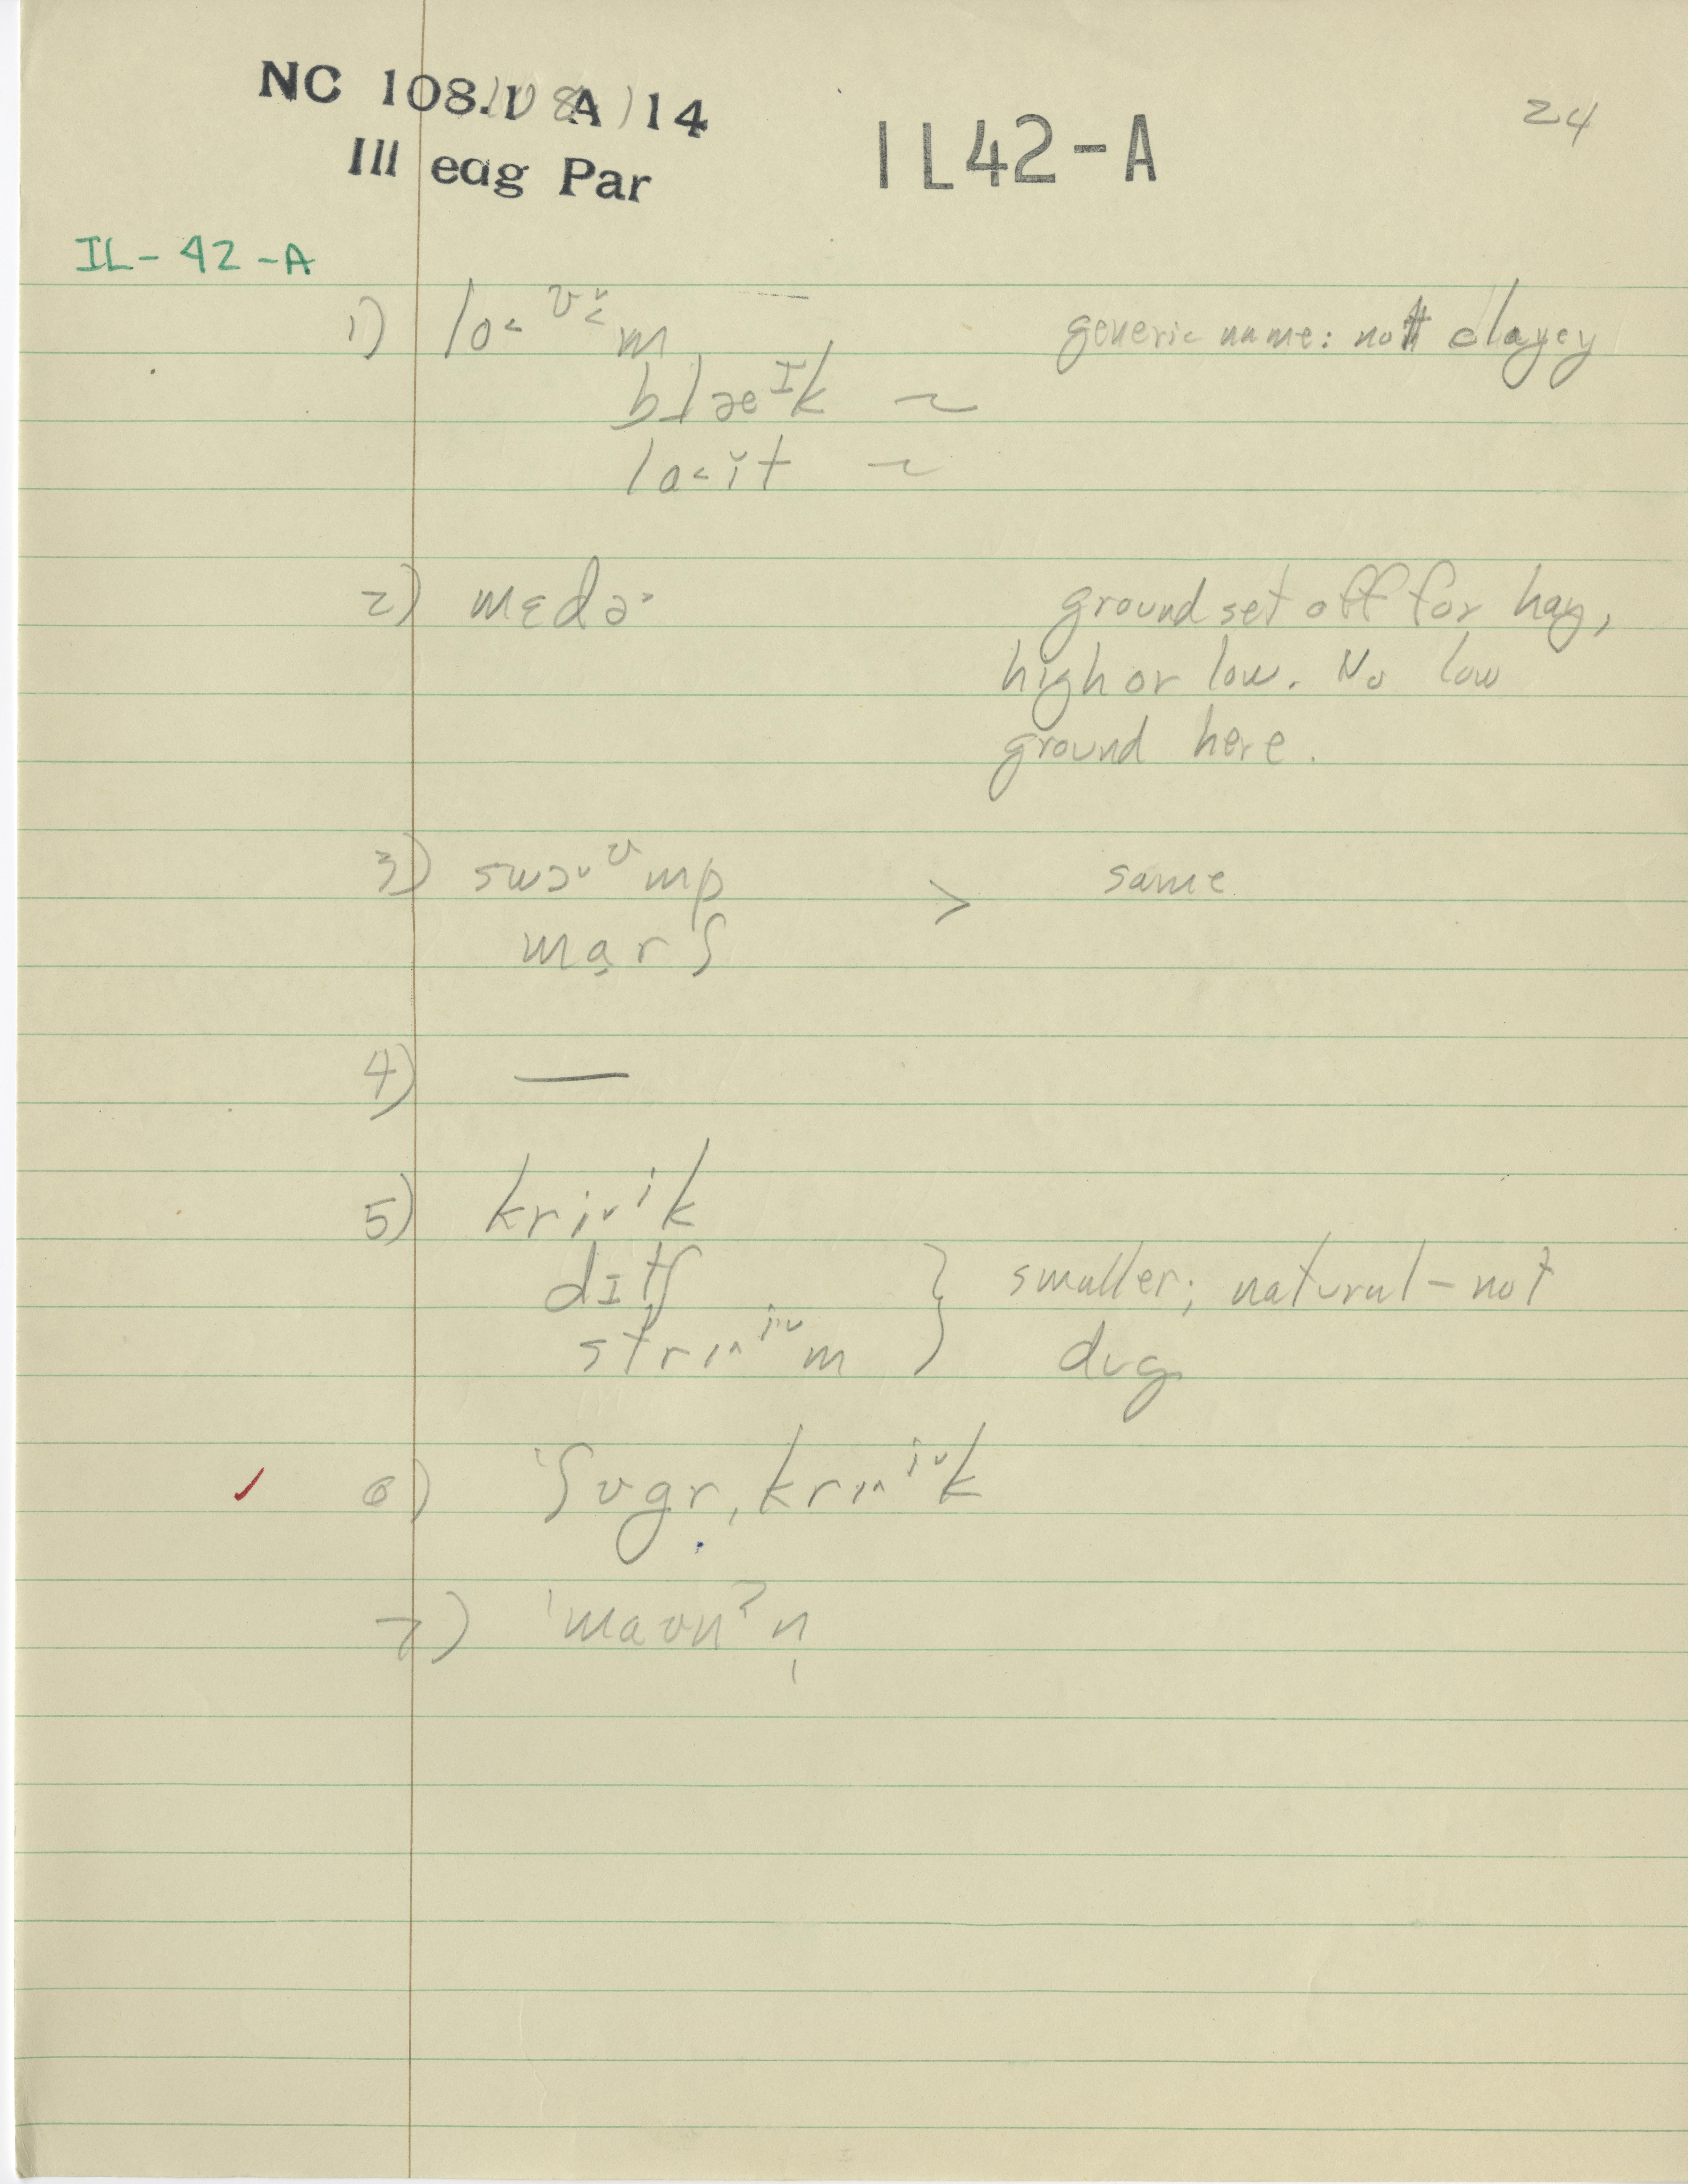 NC 108.1 A 14
Ill eag Par
IL42-A
24
IL-42-A
1) lo˂ ᶷ̆˂ m generic name: not clayey
blæᴵk ~
la˂ĭt ~
2) mɛdə˃ ground set off for hay,
high or low. No low
ground here.
3) swɔ˅ᶷmp > same
mɑ̣rʃ
4) —
5) kri˅ⁱk
dɪtʃ } smaller; natural - not
strɪ˄ⁱ˅m dug
6) ˈʃʊgr̩ˌkrɪ˄ⁱ˅k
7) ˈmaʊnʔn̩